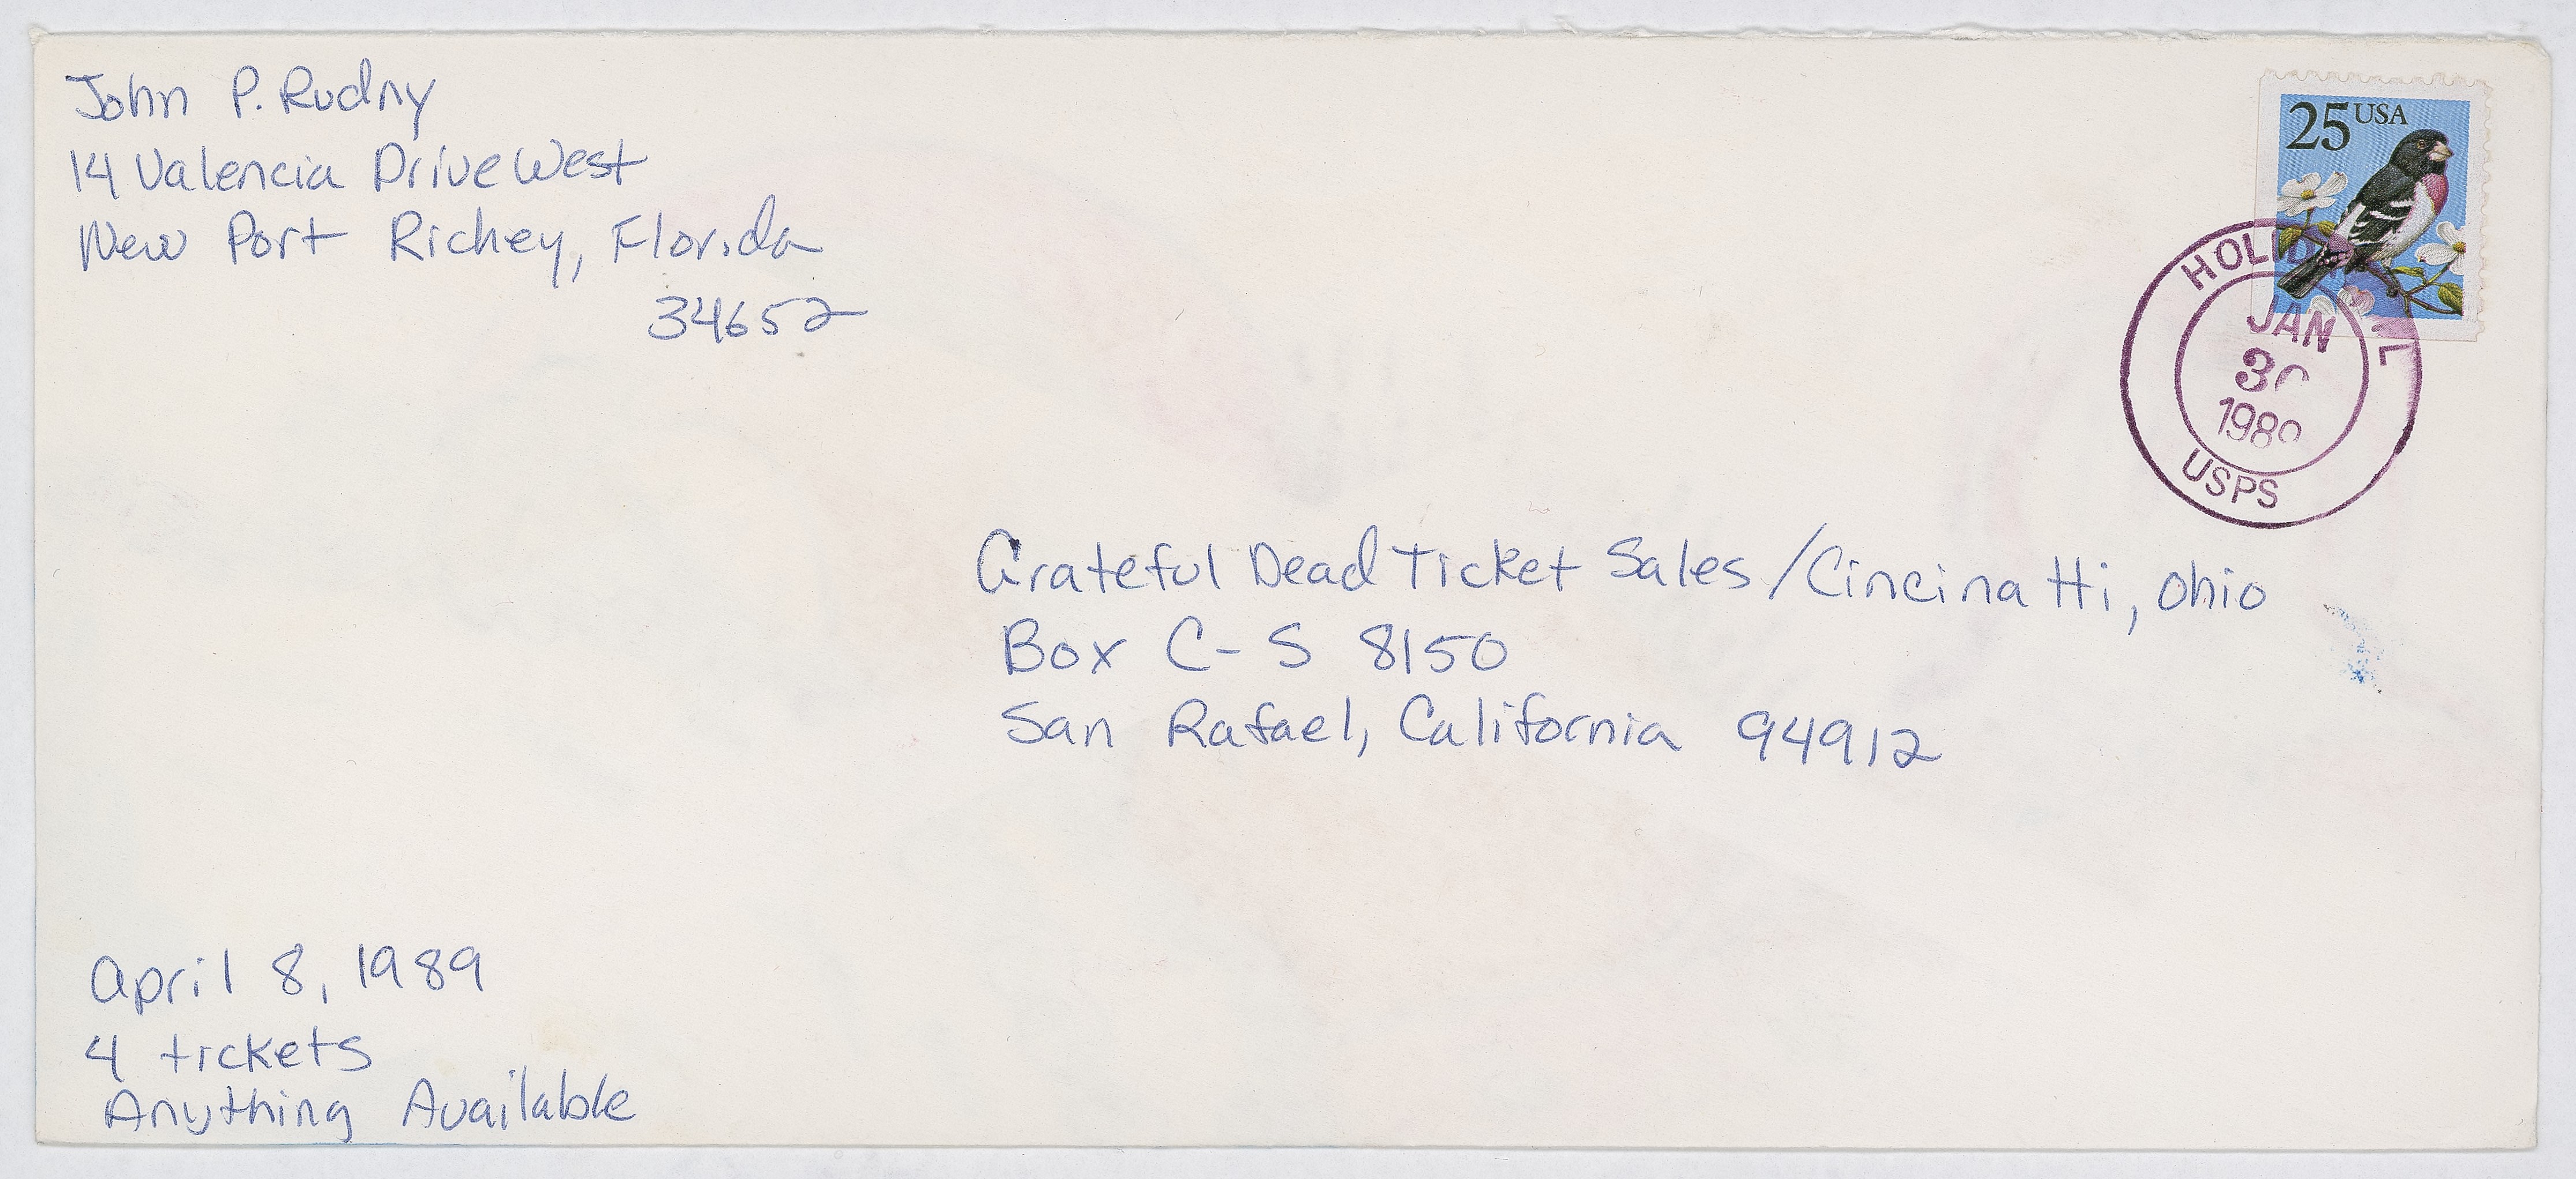 John P. Rudny
14 Valencia Drive West
New Port Richey, Florida
34652
25 USA
JAN
30
1989
USPS
Grateful Dead Ticket Sales / Cincinatti, Ohio
Box C-S 8150
San Rafael, California 94912
April 8, 1989
4 tickets
Anything Available